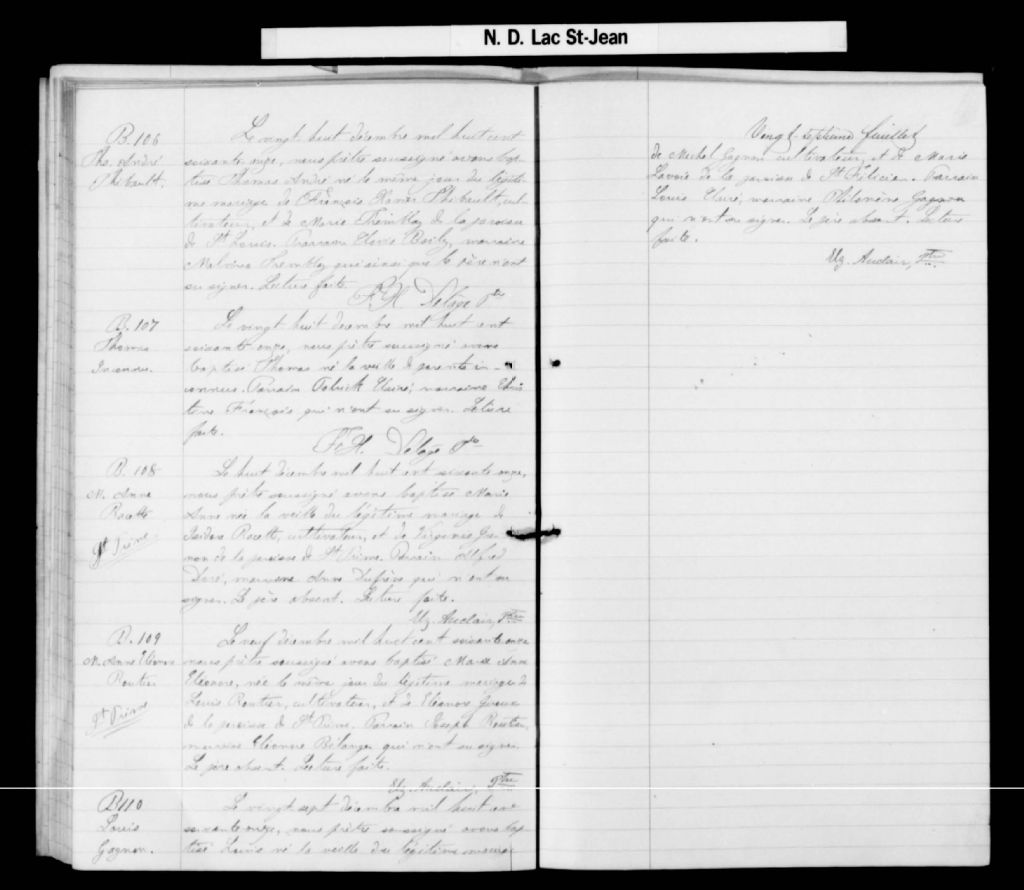 N. D. Lac St-Jean
B. 106
Ths. André
Thibault.
Le vingt huit décembre mil huit cent
soixante onze, nous prêtre soussigné avons bap
tisé Thomas André né le même jour du légiti-
me mariage de François Thibault, cul
tivateur, et de Marie Tremblay de la paroisse
de St Louis. Parrain Boily, marraine
Malvina Tremblay qui ainsi que le père n'ont
su signer. Lecture faite.
F. H. Delâge Ptre
B. 107
Thomas
Inconnu.
Le vingt huit décembre mil huit cent
soixante onze, nous prêtre soussigné avons
baptisé Thomas né la veille de parents in-
connus. Parrain Patrick marraine Chris
tine François qui n'ont su signer. Lecture
faite.
F. H. Delâge Ptre
B. 108
M. Anne
St Prime
Le huit décembre mil huit cent soixante onze,
nous prêtre soussigné avons baptisé Marie
Anne née la veille du légitime mariage de
Isidore cultivateur, et de Virginie
de la paroisse de St Prime. Parrain Alfred
Doré, marraine Anne Dufrène qui n'ont su
signer. Le père absent. Lecture faite.
Uz. Auclair, Ptre
B. 109
M. Anne Eléonore
Routier
St Prime
Le neuf décembre mil huit cent soixante onze
nous prêtre soussigné avons baptisé Marie Anne
Eléonore, née le même jour du légitime mariage de
Louis Routier, cultivateur, et de Eléonore
de la paroisse de St Prime. Parrain Joseph Routier,
marraine Eléonore Bélanger qui n'ont su signer.
Le père absent. Lecture faite.
Uz. Auclair, Ptre
B 110
Louis
Gagnon.
Le vingt sept décembre mil huit cent
soixante onze, nous prêtre soussigné avons bap
tisé Louis né la veille du légitime mariage
Vingt septième feuillet
de Michel Gagnon cultivateur, et de Marie
Lavoie de la paroisse de St Félicien. Parrain
Louis marraine Philomène Gagnon
qui n'ont su signer. Le père absent. Lecture
faite.
Uz. Auclair, Ptre